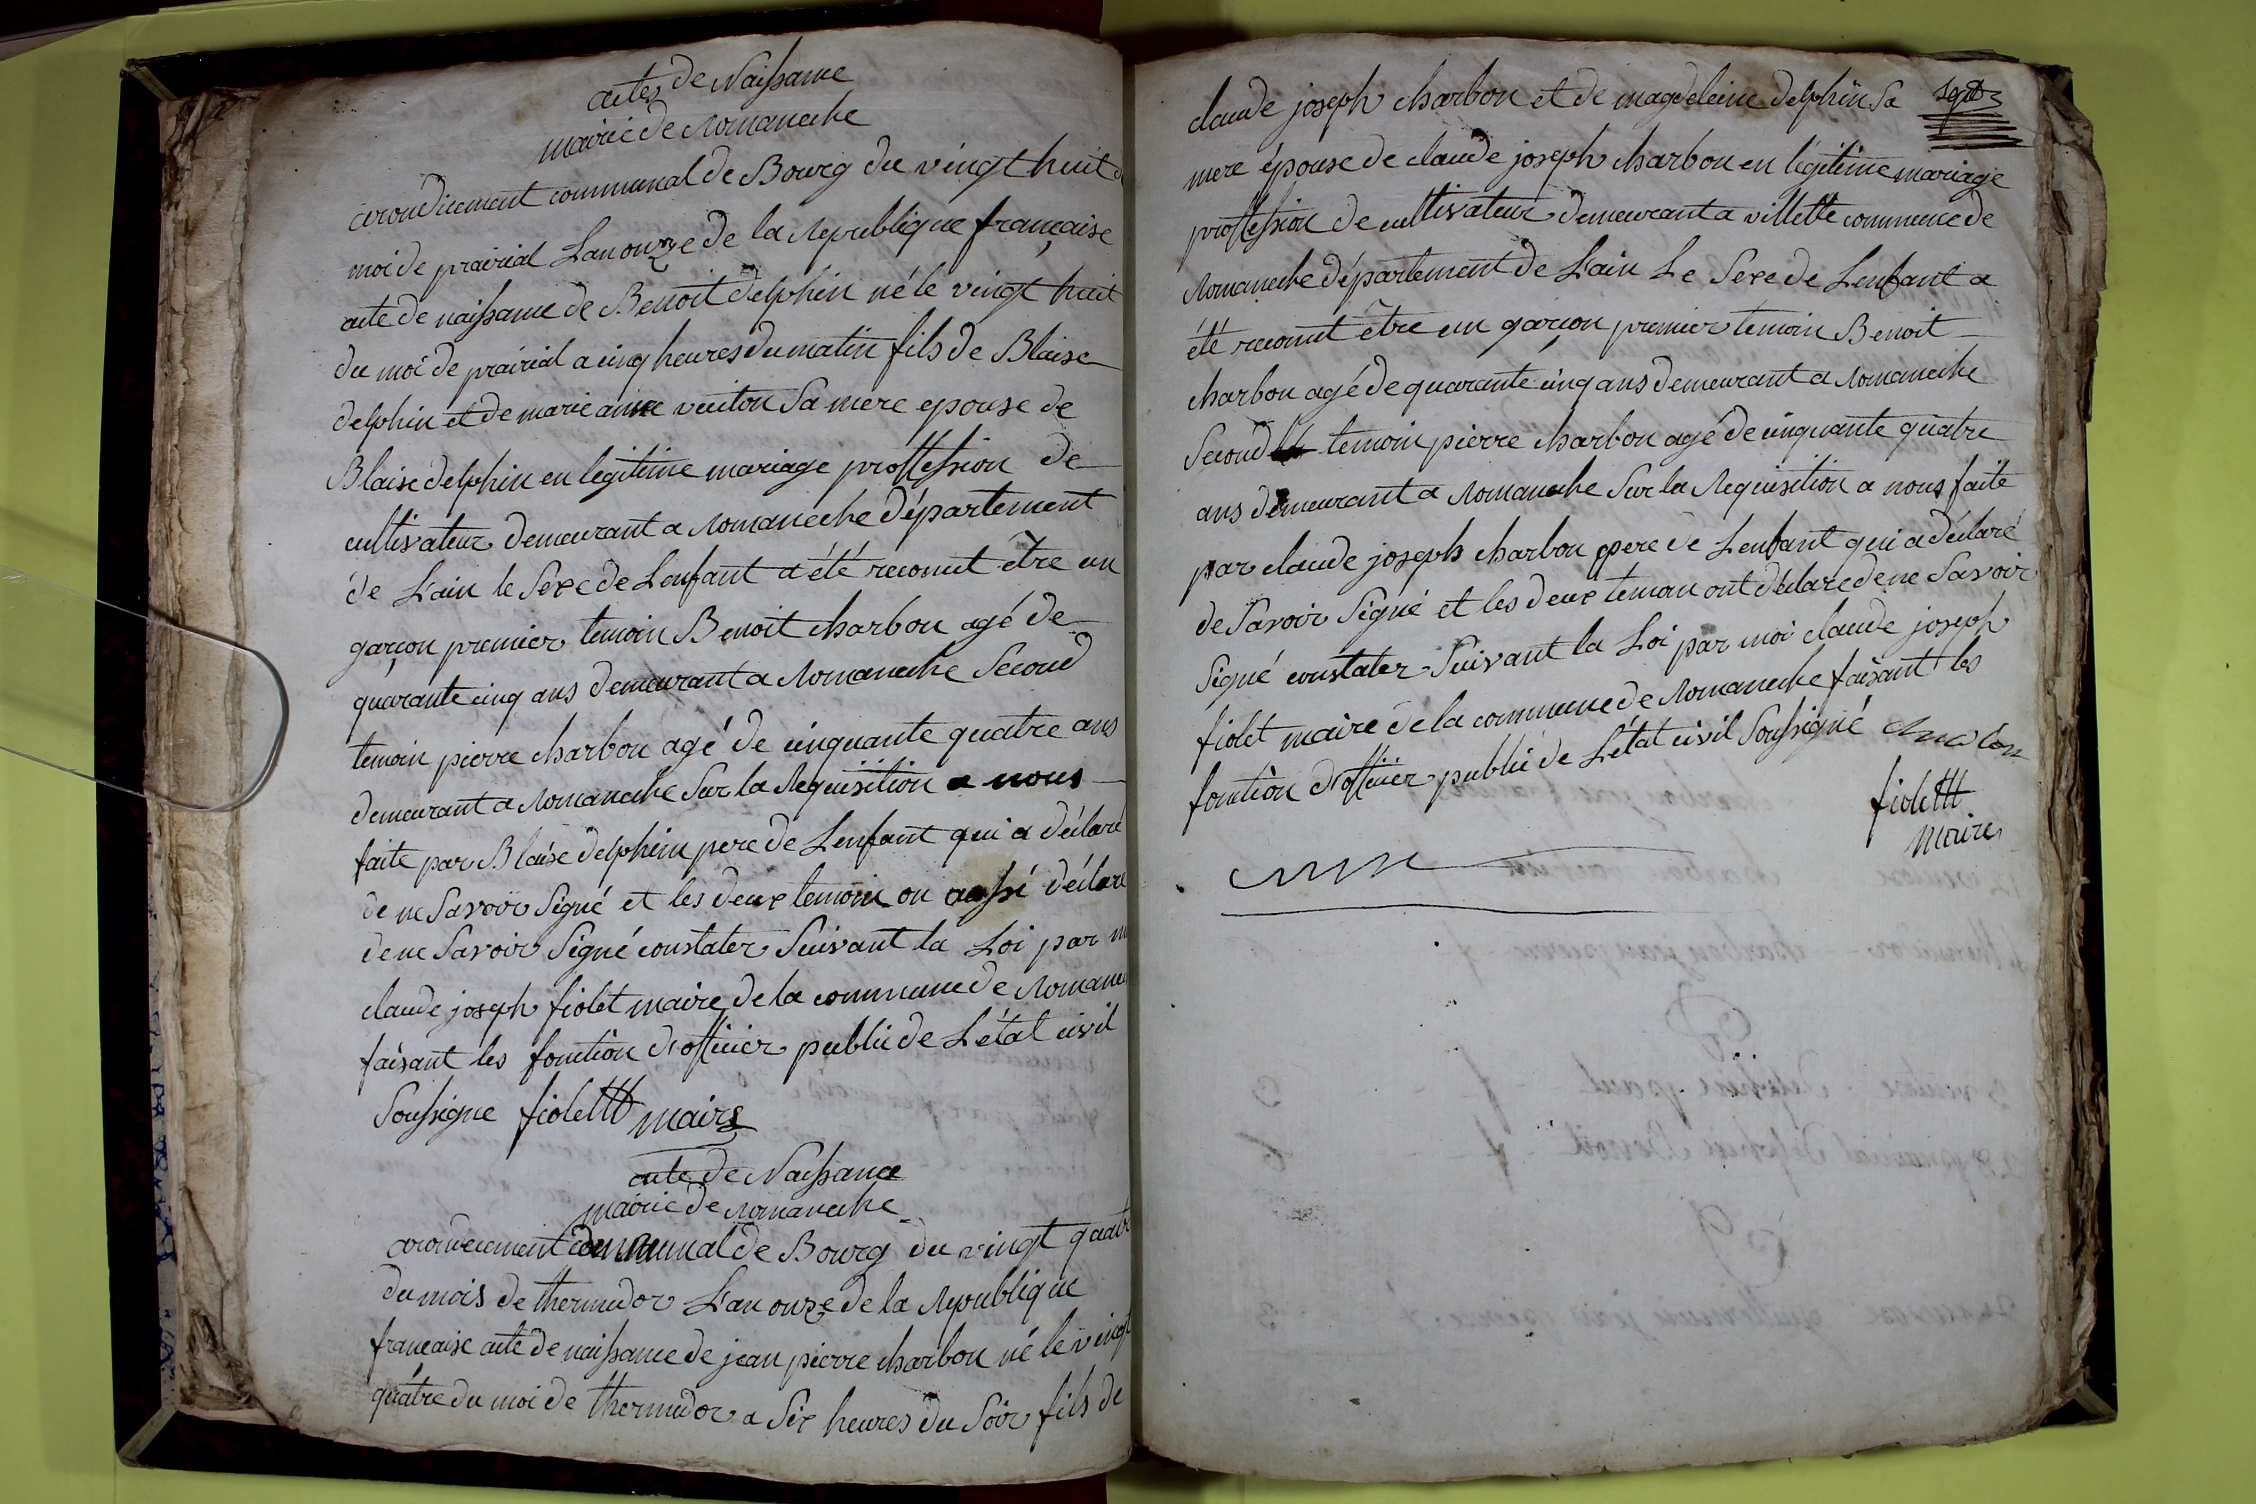 actes de Naissance
mairie de Romaneche
arondicement communal de Bourg du vingt huit
moi de prairial Lan onze de la Republique française
acte de naissance de Benoit delphin né le vingt huit
du moi de prairial a cinq heures du matin fils de Blaise
delphin et de marie anne vuiton Sa mere epouse de
Blaise delphin en legitime mariage proffession de
cultivateur demeurant a Romaneche département
de L'ain le Sexe de Lenfant a été reconnut être un
garçon premier temoin Benoit charbon agé de
quarante cinq ans demeurant a Romaneche Second
temoin pierre charbon agé de cinquante quatre ans
demeurant a Romaneche Sur la Requisition a nous
faite par Blaise delphin pere de Lenfant qui a déclaré
de ne Savoir Signé et les deux temoin on aussi déclaré
de ne Savoir Signé constater Suivant la Loi par m
claude joseph fiolet maire de la commune de Romane
faisant les fonction d'officier public de L'état civil
Soussigne fiolettt maire
acte de Naissance
mairie de Romaneche
arondicement communal de Bourg du vingt quatr
du mois de thermidor L'an onze de la Republique
francaise acte de naissance de jean pierre charbon né le vingt
quatre du moi de thermidor a Six heures du Soir fils de
claude joseph charbon et de magdeleine delphin Sa
sept
mere épouse de claude joseph charbon en légitime mariage
proffession de cultivateur demeurant a villette commune de
Romaneche département de L'ain Le Sexe de Lenfant a
été reconnut être un garçon premier temoin Benoit
charbon agé de quarante cinq ans demeurant a Romaneche
Second temoin pierre charbon agé de cinquante quatre
ans demeurant a Romaneche Sur la Requisition a nous faite
par claude joseph charbon pere de Lenfant qui a déclaré
de Savoir Signé et les deux temoin ont déclaré de ne Savoir
Signé constater Suivant la Loi par moi claude joseph
fiolet maire de la commune de Romaneche faisant les
fonction d'officier public de L'état civil Soussigné
fiolettt
maire